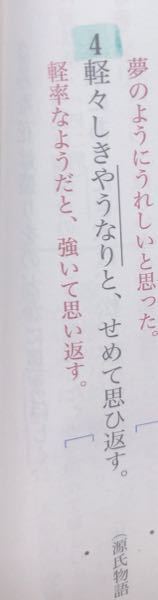 夢のようにうれしいと思った。
4 軽々しきやうなりと、せめて思ひ返す。
(源氏物語
軽率なようだと、強いて思い返す。